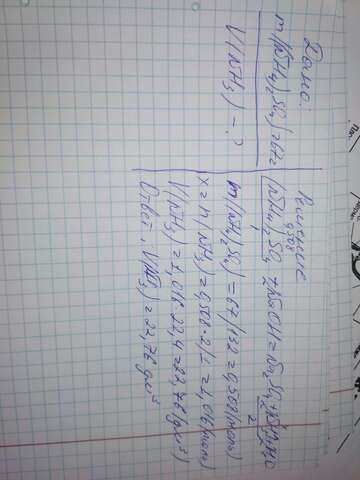 Дано:
m(NH₄)₂SO₄)=67г
V(NH₃) - ?
Решение
0,508
(NH₄)₂SO₄ + 2NaOH = Na₂SO₄ +
1
2
m(NH₄)₂SO₄) = 67/132 = 0,508(моль)
x = n(NH₃) = 0,508·2/1 = 1,016(моль)
V(NH₃) = 1,016·22,4 = 22,76 (дм³)
Ответ: V(NH₃) = 22,76 дм³